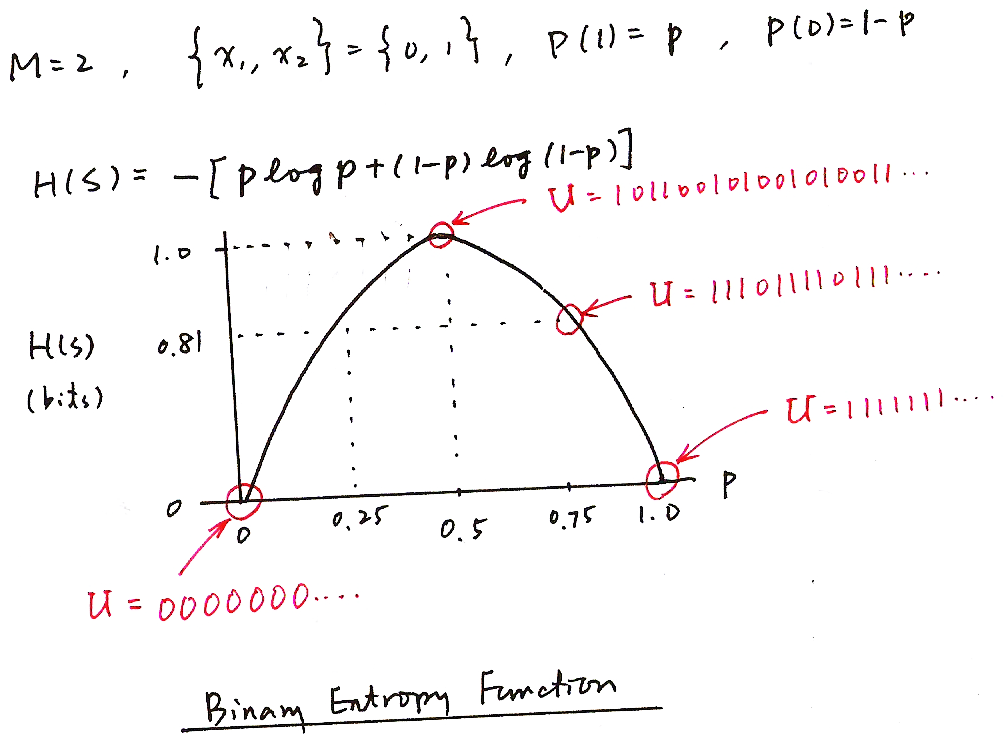 M=2 , {x₁, x₂} = {0, 1} , P(1) = p , P(0)=1-p
H(S) = -[p log p+(1-p) log (1-p)]
U = 10110010100101 0011...
1.0
U = 11101111 0111....
H(s)
(bits)
0.81
U=1111111....
0
0
0.25
0.5
0.75
1.0
P
U = 0000000....
Binary Entropy Function